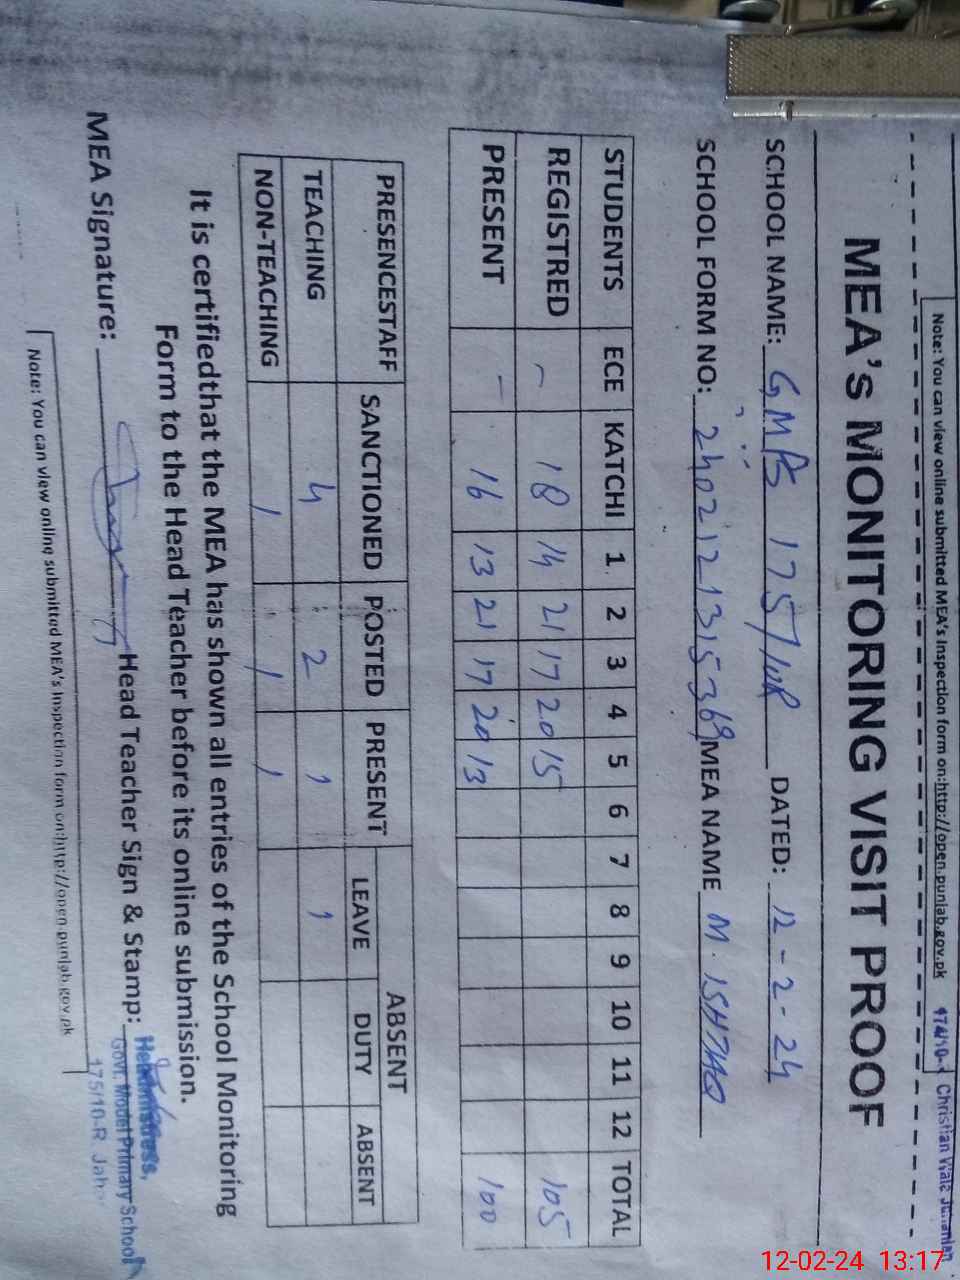 Note: You can view online submitted MEA's Inspection form on:http://open.punjab.gov.pk
Christian Wala
MEA's MONITORING VISIT PROOF
SCHOOL NAME: GMPS 175/10R DATED: 12-2-24
SCHOOL FORM NO: MEA NAME M. ISHTIAQ
STUDENTS ECE KATCHI 1 2 3 4 5 6 7 8 9 10 11 12 TOTAL
REGISTRED - 18 14 21 17 20 15 105
PRESENT - 16 13 21 17 20 13 100
PRESENCESTAFF SANCTIONED POSTED PRESENT ABSENT
LEAVE DUTY ABSENT
TEACHING 4 2 1 1
NON-TEACHING 1 1 1
It is certifiedthat the MEA has shown all entries of the School Monitoring
Form to the Head Teacher before its online submission.
MEA Signature: Head Teacher Sign & Stamp: Headmistress,
Govt. Model Primary School
175/10-R
Note: You can view online submitted MEA's Inspection form on:http://open.punjab.gov.pk
12-02-24 13:17